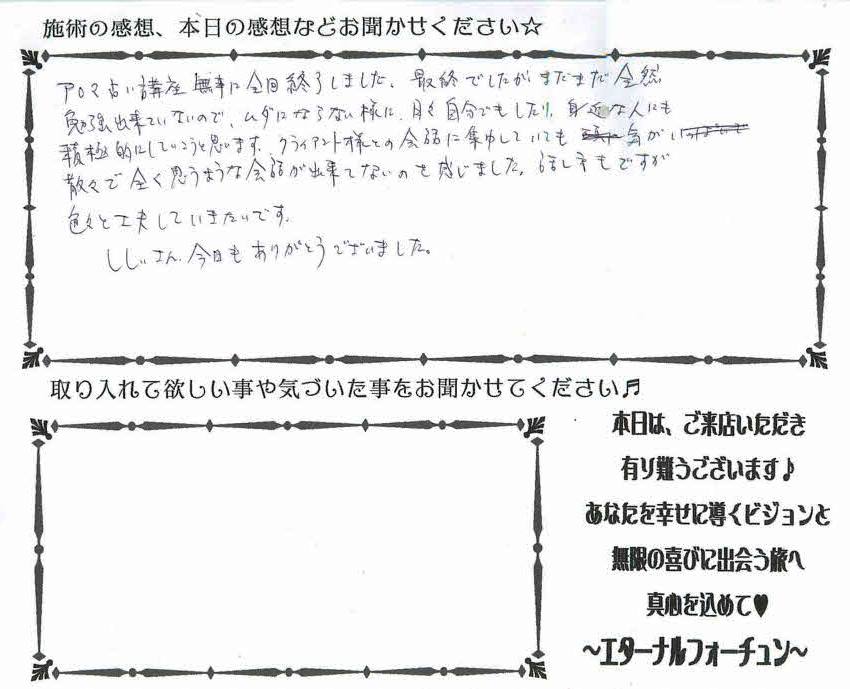 施術の感想、本日の感想などお聞かせください☆
アロマ占い講座 無事に全回終了しました。最終でしたがまだまだ全然
勉強出来ていないので、ムダにならない様に、月々自分でもしたり、身近な人にも
積極的にしていこうと思います。クライアント様との会話に集中していても 気が
散々で全く思うような会話が出来てないのを感じました。話し方もですが
色々と工夫していきたいです。
しじぃさん、今日もありがとうございました。
取り入れて欲しい事や気づいた事をお聞かせてください♬
本日は、ご来店いただき
有り難うございます♪
あなたを幸せに導くビジョンと
無限の喜びに出会う旅へ
真心を込めて♥
〜エターナルフォーチュン〜